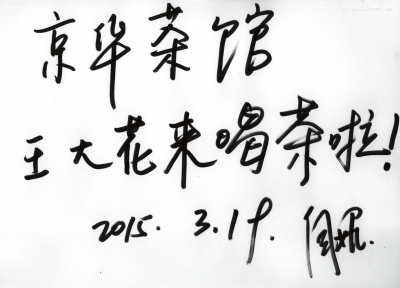 京华茶馆
王大花来喝茶啦!
2015. 3.19.